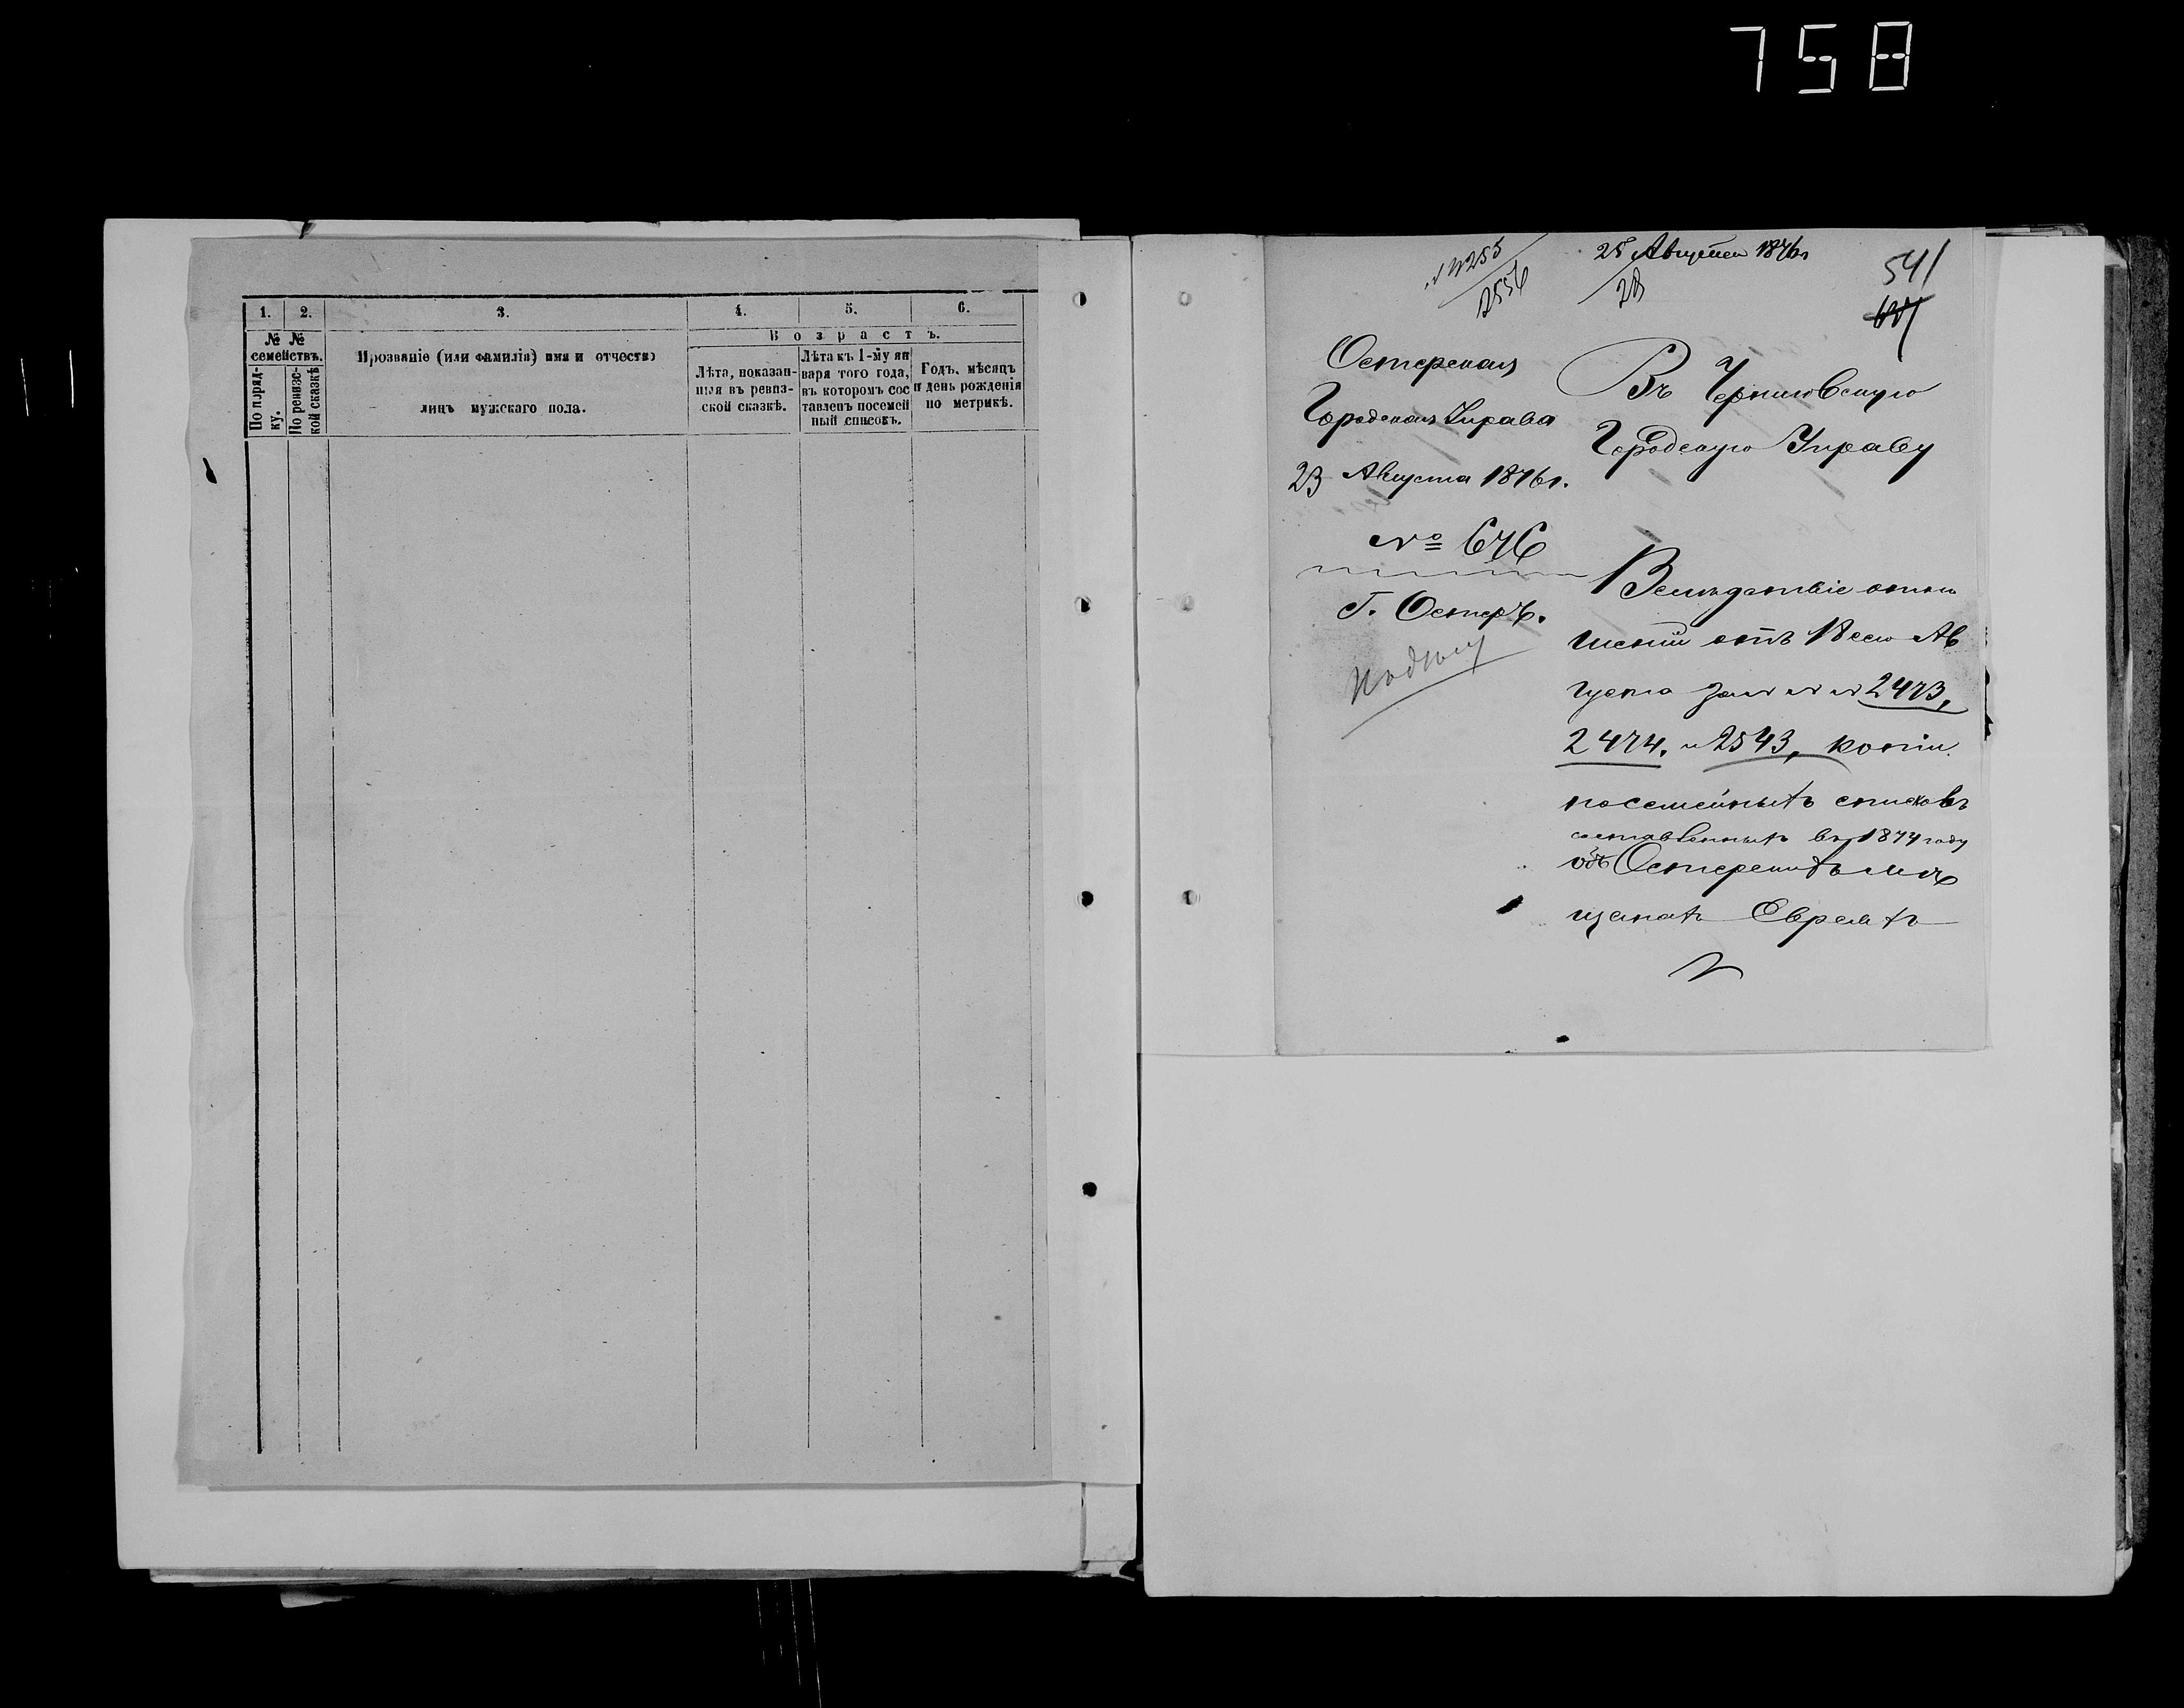 758
1. 2. 3. 4. 5. 6.
№ № семействъ.
По поряд-
ку.
По ревизс-
кой сказкѣ
Прозваніе (или фамилія) имя и отчество
лицъ мужскаго пола.
Возрастъ.
Лѣта, показан-
ныя въ ревиз-
ской сказкѣ.
Лѣта къ 1-му ян
варя того года,
въ которомъ сос
тавленъ посемей
ный списокъ.
Годъ, мѣсяцъ
и день рожденія
по метрикѣ.
25 Августа 1876 г
28
541
Остерская
Городская Управа
23 Августа 1876 г.
№ 676
Г. Остеръ.
Въ Черниговскую
Городскую Управу
Вслѣдствіе отно
шеній отъ 18 сего Ав
густа за №№ 2473,
2474. и 2543, копіи
посемейныхъ списковъ
составленныхъ въ 1874 году
объ Остерскихъ мѣ
щанахъ Евреяхъ